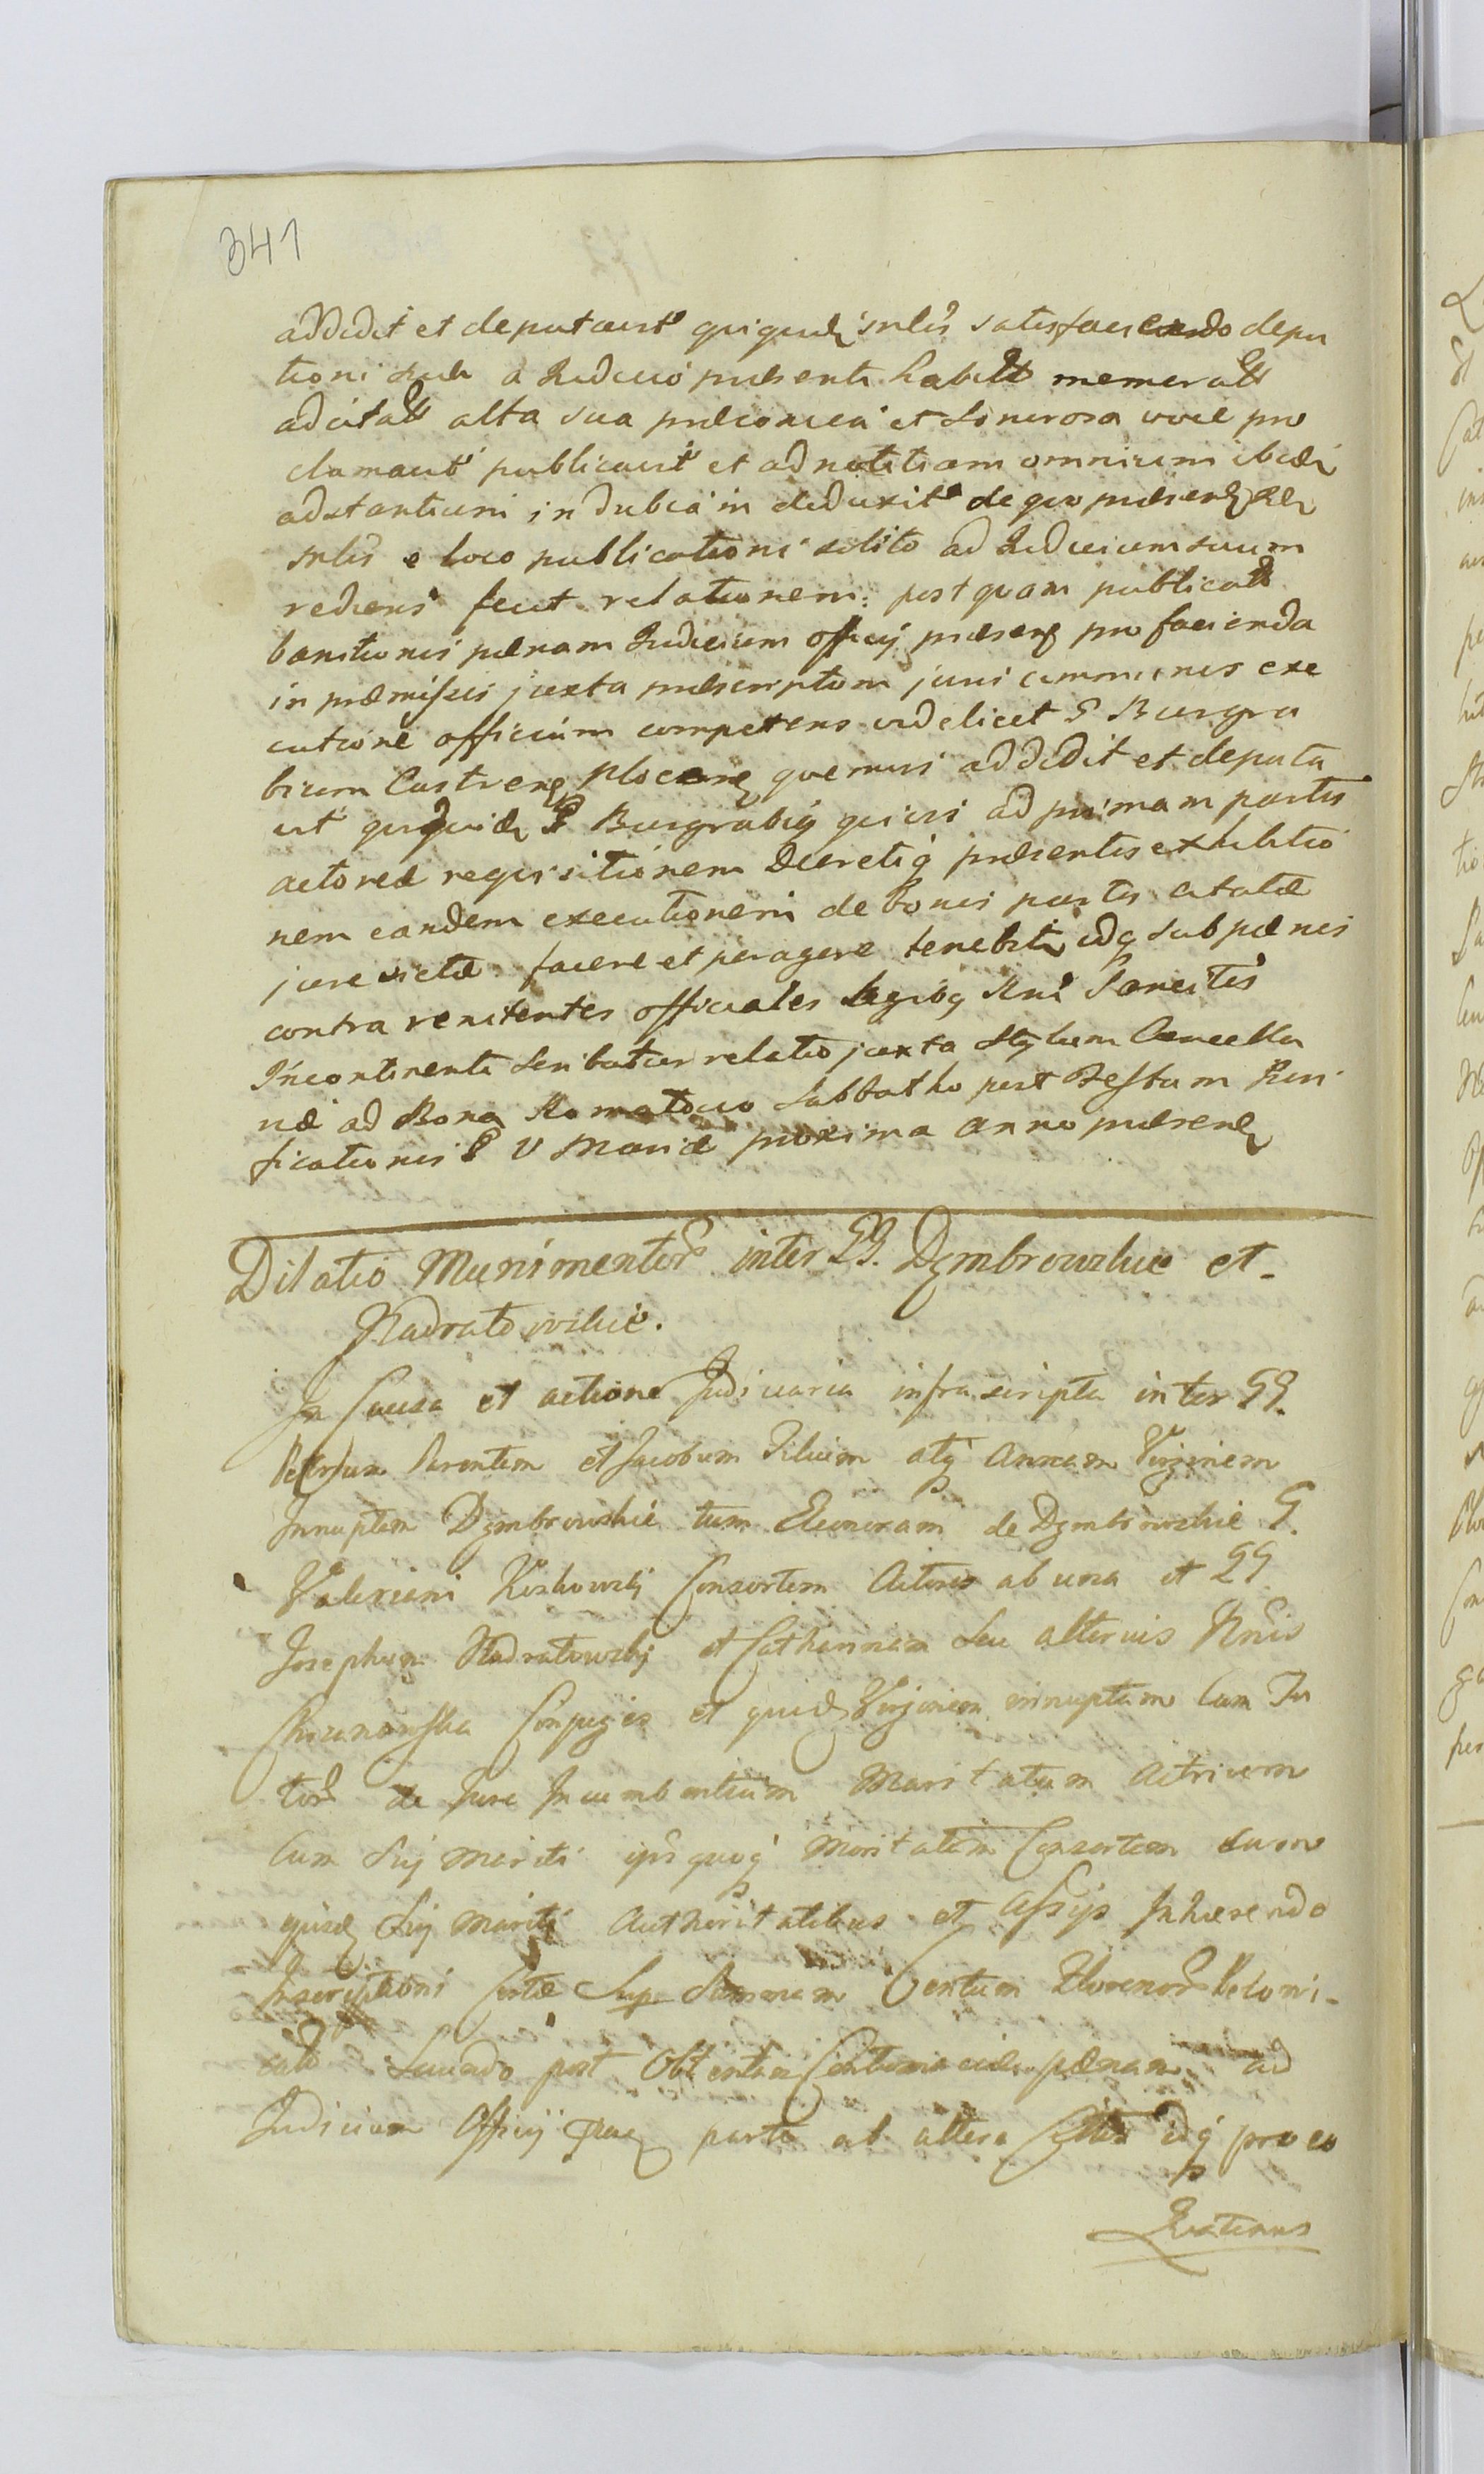 341
addidit et deputavit qui quidem mlis satisfaciendo depu
tioni suæ a Judicio præsenti habitæ memeratt
adcitatt alta sua præconica et sonorosa voce pro
clamavit publicavit et ad notitiam omnium ibidem
adstantium indubiam deduxit de quo præsens
mlis e loco publicationi solito ad Judicium suum
rediens fecit relationem: post quam publicatt
banitionis pænam Judicium officij præsens pro facienda
in præmissis juxta præscriptum juris communis exe
cutione officium competens videlicet G Burgra
bium Castrens Plocens quemvis addidit et deputa
vit qui quidem G Burgrabiq quivis ad primam partis
actoreæ requisitionem Decretiq præsentis exhibitio
nem eandem executionem de bonis partis citatæ
jure victæ facere et peragere tenebitur idq sub pænis
contra renitentes officiales legibq Rni Sancitis
Incontinenti scribatur relatio juxta stylum Cancella
riæ ad Bona Romatowo Sabbatho post Festum Puri
ficationis B V Mariæ proxima anno præsens
Dilatio Munimentor inter GG. Dzmbrowskie et
Nadratowskie.
In Causa et actione Judiciaria infrascripta inter GG.
Parentem et Jacobum Filium atq Annam Virginem
Innuptam Dzmbrowskie tum Eleonoram de Dzmbrowskie G.
Valeriani Koskowski Consortem Actores ab una et GG
Josephum Nadratowski et Catharinam seu alterius Nnis
Conjuges et quidem Virginem innuptam Cum Tu
tor de Jure Incumbentium Maritatam Actricem
Cum sui mariti ipsi quoq Maritatam Consortem suam
sui mariti Authoritatibus et assis Inhærendo
Inscriptioni Certæ Sup Summam Centum Florenor Poloni-
calium Secundo post Obtentam Contumaciæ pænam ad
Judicium Officij præs parte ab altera Cittos idq pro eo
Quatenus